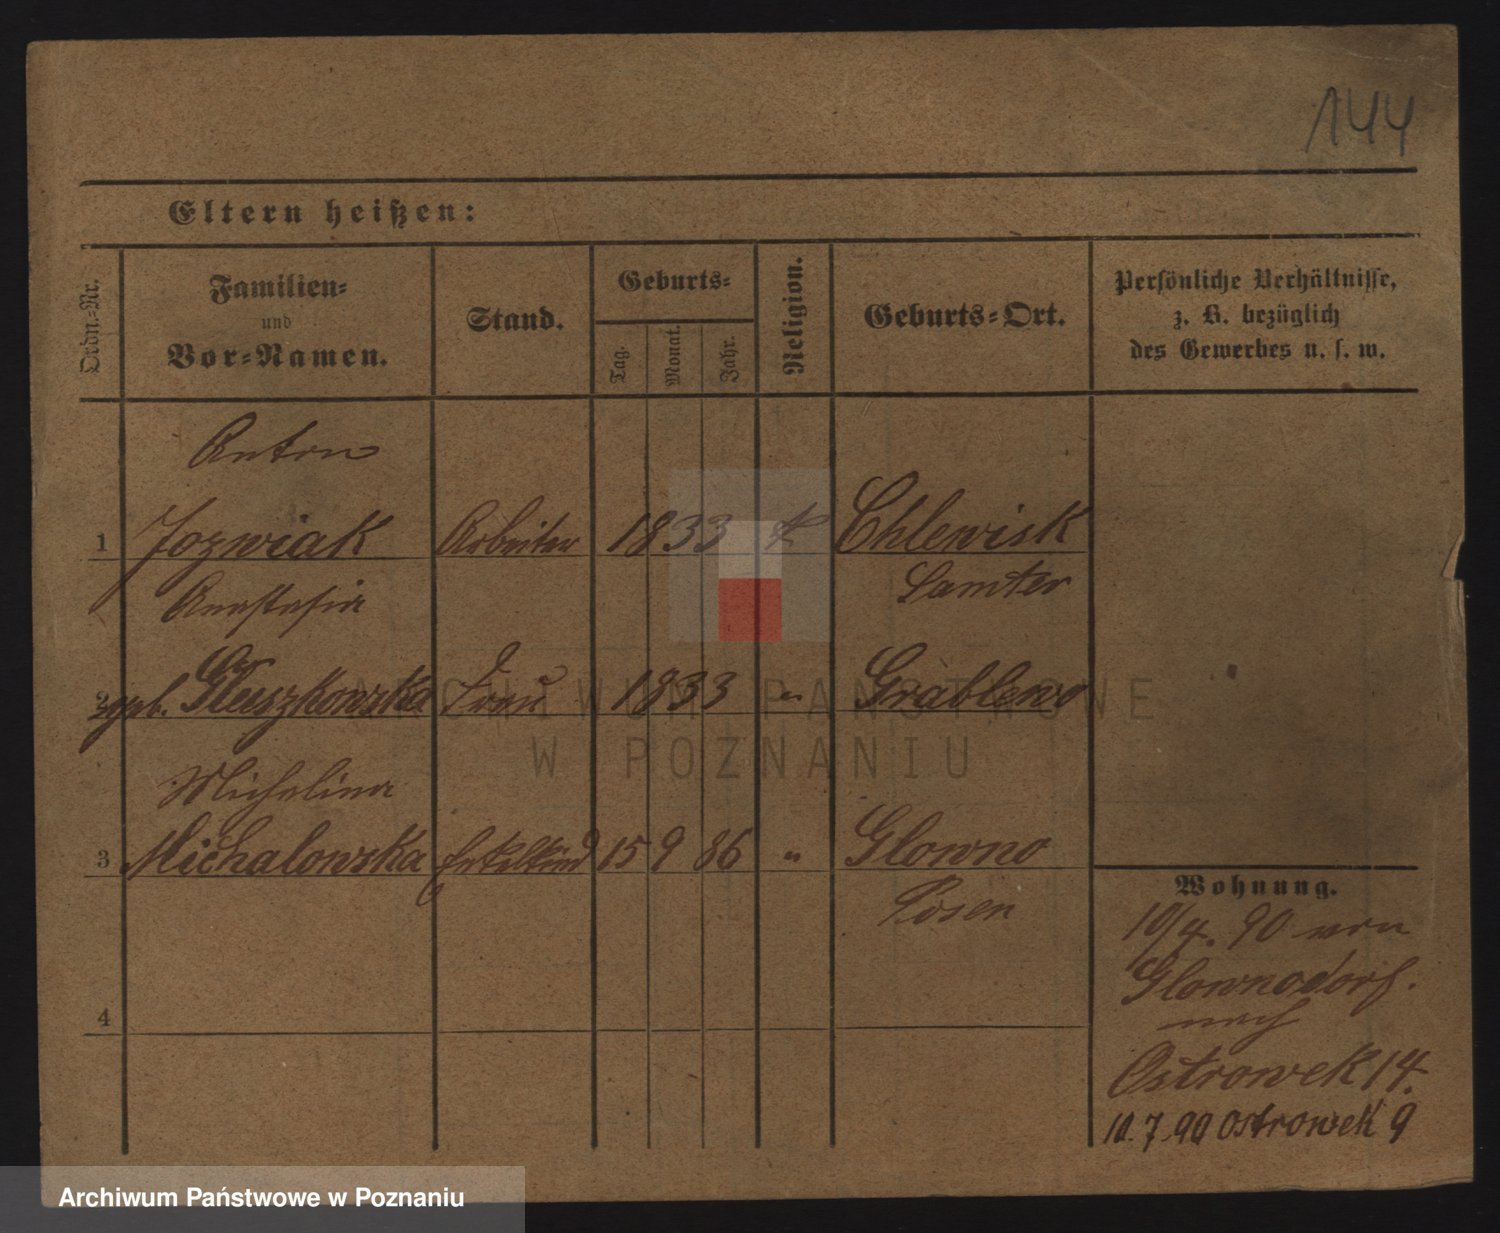 144
Eltern heißen:
Ordn.-Nr.
Familien-
und
Vor-Namen.
Stand.
Geburts-
Tag.
Monat.
Jahr.
Religion.
Geburts-Ort.
Persönliche Verhältnisse,
z. B. bezüglich
des Gewerbes u. s. w.
Anton
1 Jozwiak Arbeiter 1833 Chlewisk
Anastasia Samter
2 geb. Gluszkowska Frau 1833 " Grablewo
Michalina
3 Michalowska Enkelkind 15 9 86 " Glowno
Posen
4
Wohnung.
10/4. 90 von
Glownodorf.
nach
Ostrowek 14.
10.7.90 Ostrowek 9
ARCHIWUM PAŃSTWOWE
W POZNANIU
Archiwum Państwowe w Poznaniu